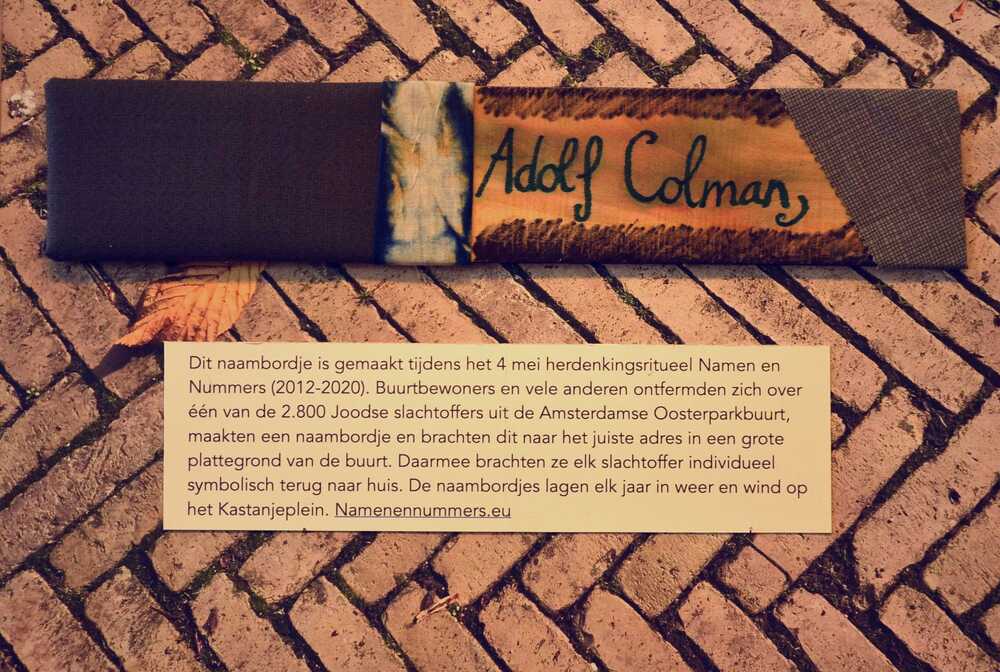 Adolf Colman,
Dit naambordje is gemaakt tijdens het 4 mei herdenkingsritueel Namen en
Nummers (2012-2020). Buurtbewoners en vele anderen ontfermden zich over
één van de 2.800 Joodse slachtoffers uit de Amsterdamse Oosterparkbuurt,
maakten een naambordje en brachten dit naar het juiste adres in een grote
plattegrond van de buurt. Daarmee brachten ze elk slachtoffer individueel
symbolisch terug naar huis. De naambordjes lagen elk jaar in weer en wind op
het Kastanjeplein. Namenennummers.eu